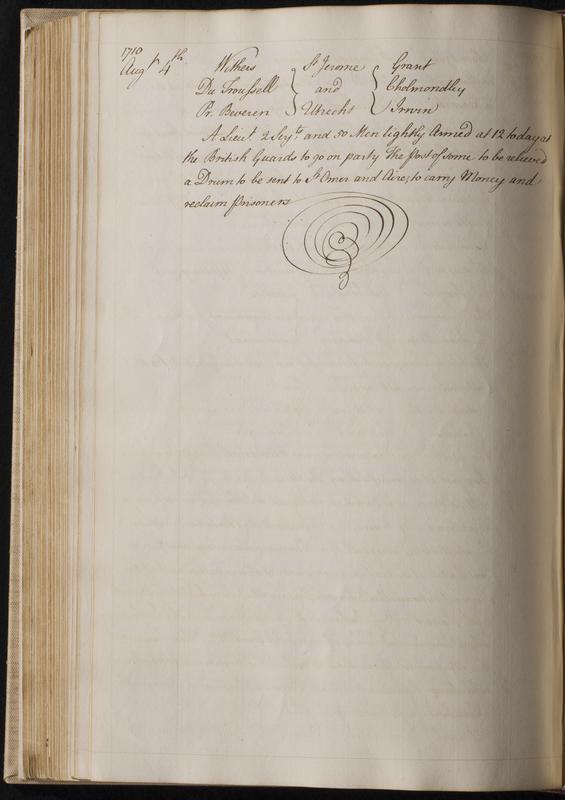 1710
Augt 4th Withers } St Jerome { Grant
Du Troussell } and { Cholmondley
Pr. Beveren } Utrecht { Irwin
A Lieut. 2 Serjts. and 50 Men lightly Armed at 12 today at
the British Guards to go on party the Post of some to be relieved
a Drum to be sent to St Omer and Aire, to carry Money and
reclaim Prisoners